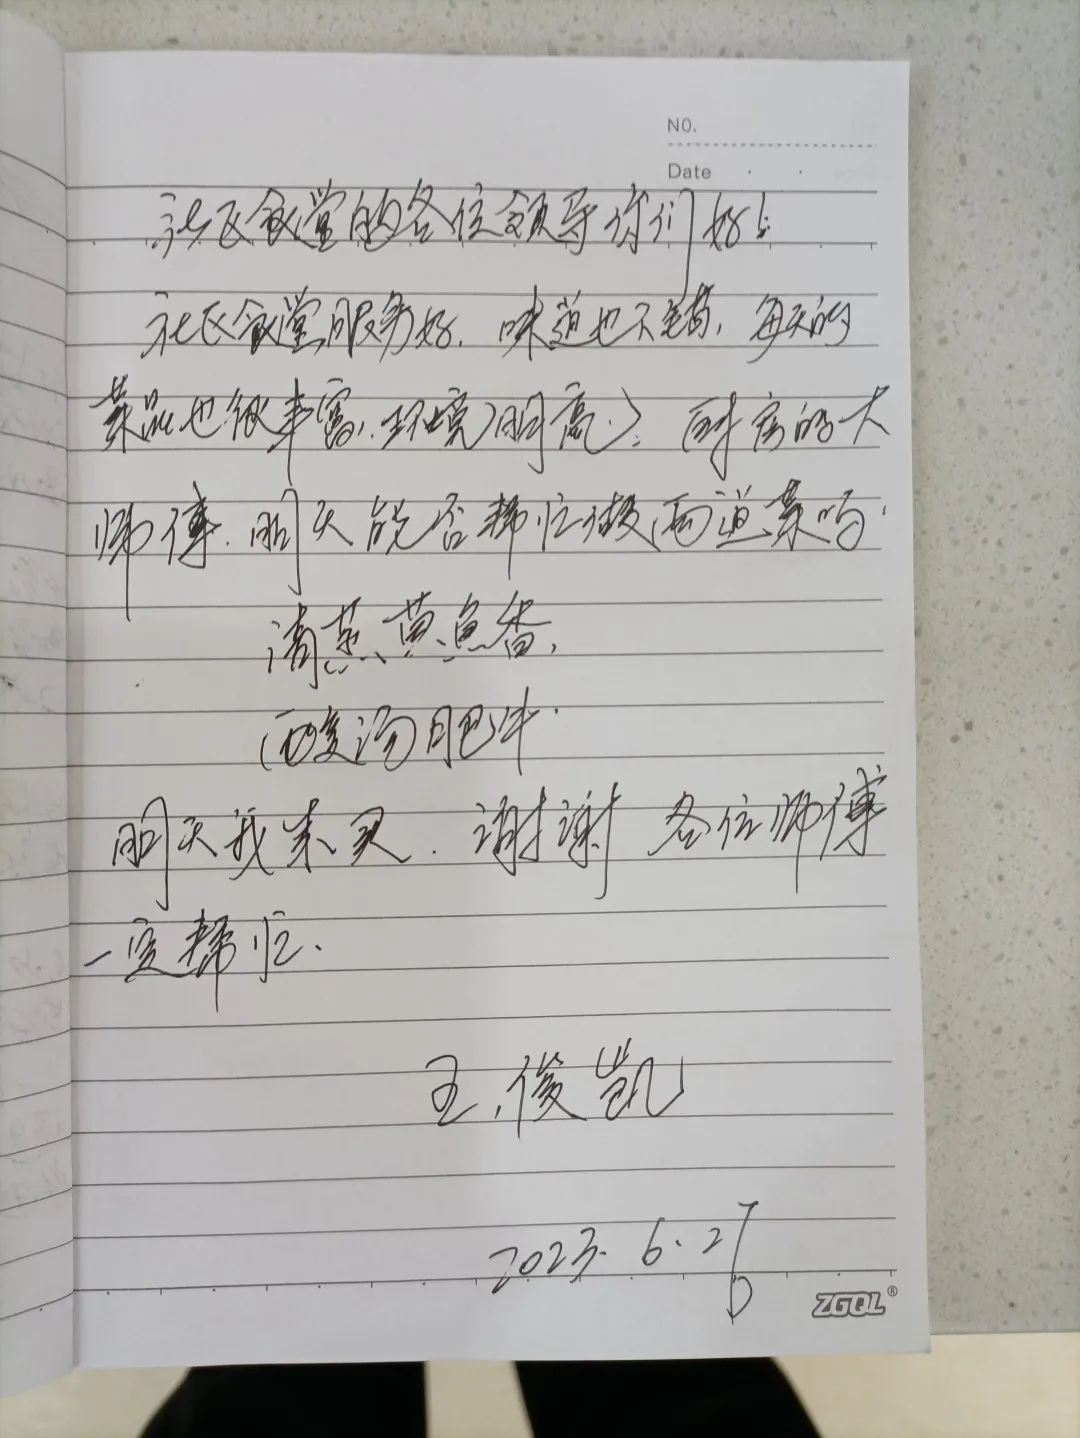 NO.
Date
社区食堂的各位领导你们好!
社区食堂服务好,味道也不错,每天的
菜品也很丰富,环境明亮,厨房的大
师傅,明天能否帮忙做两道菜吗.
清蒸黄鱼香,
酸汤肥牛.
明天我来买.谢谢各位师傅
一定帮忙.
王俊凯
2023.6.27
ZGQL®